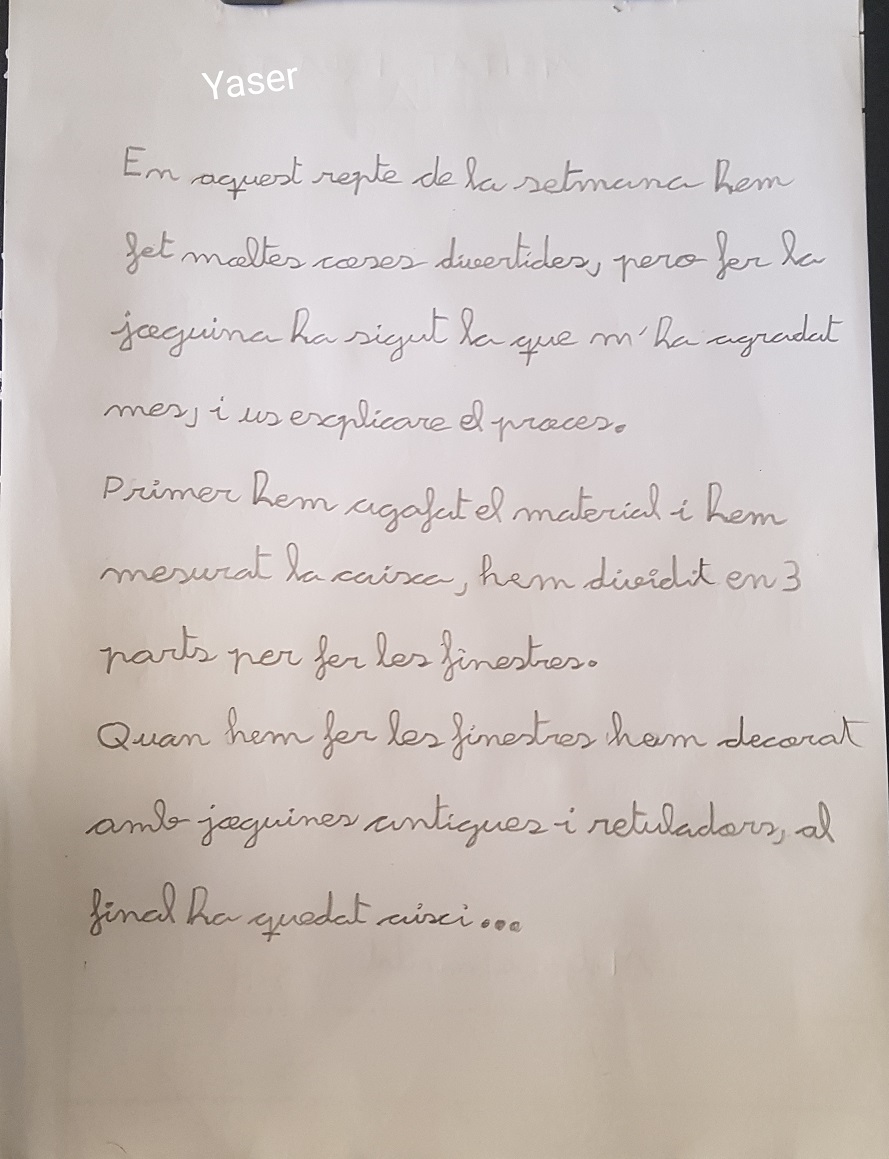 Yaser
En aquest repte de la setmana hem
fet moltes coses divertides, pero fer la
joguina ha sigut la que m'ha agradat
mes, i us explicare el proces.
Primer hem agafat el material i hem
mesurat la caixa, hem dividit en 3
parts per fer les finestres.
Quan hem fer les finestres hem decorat
amb joguines antigues i retuladors, al
final ha quedat aixi...